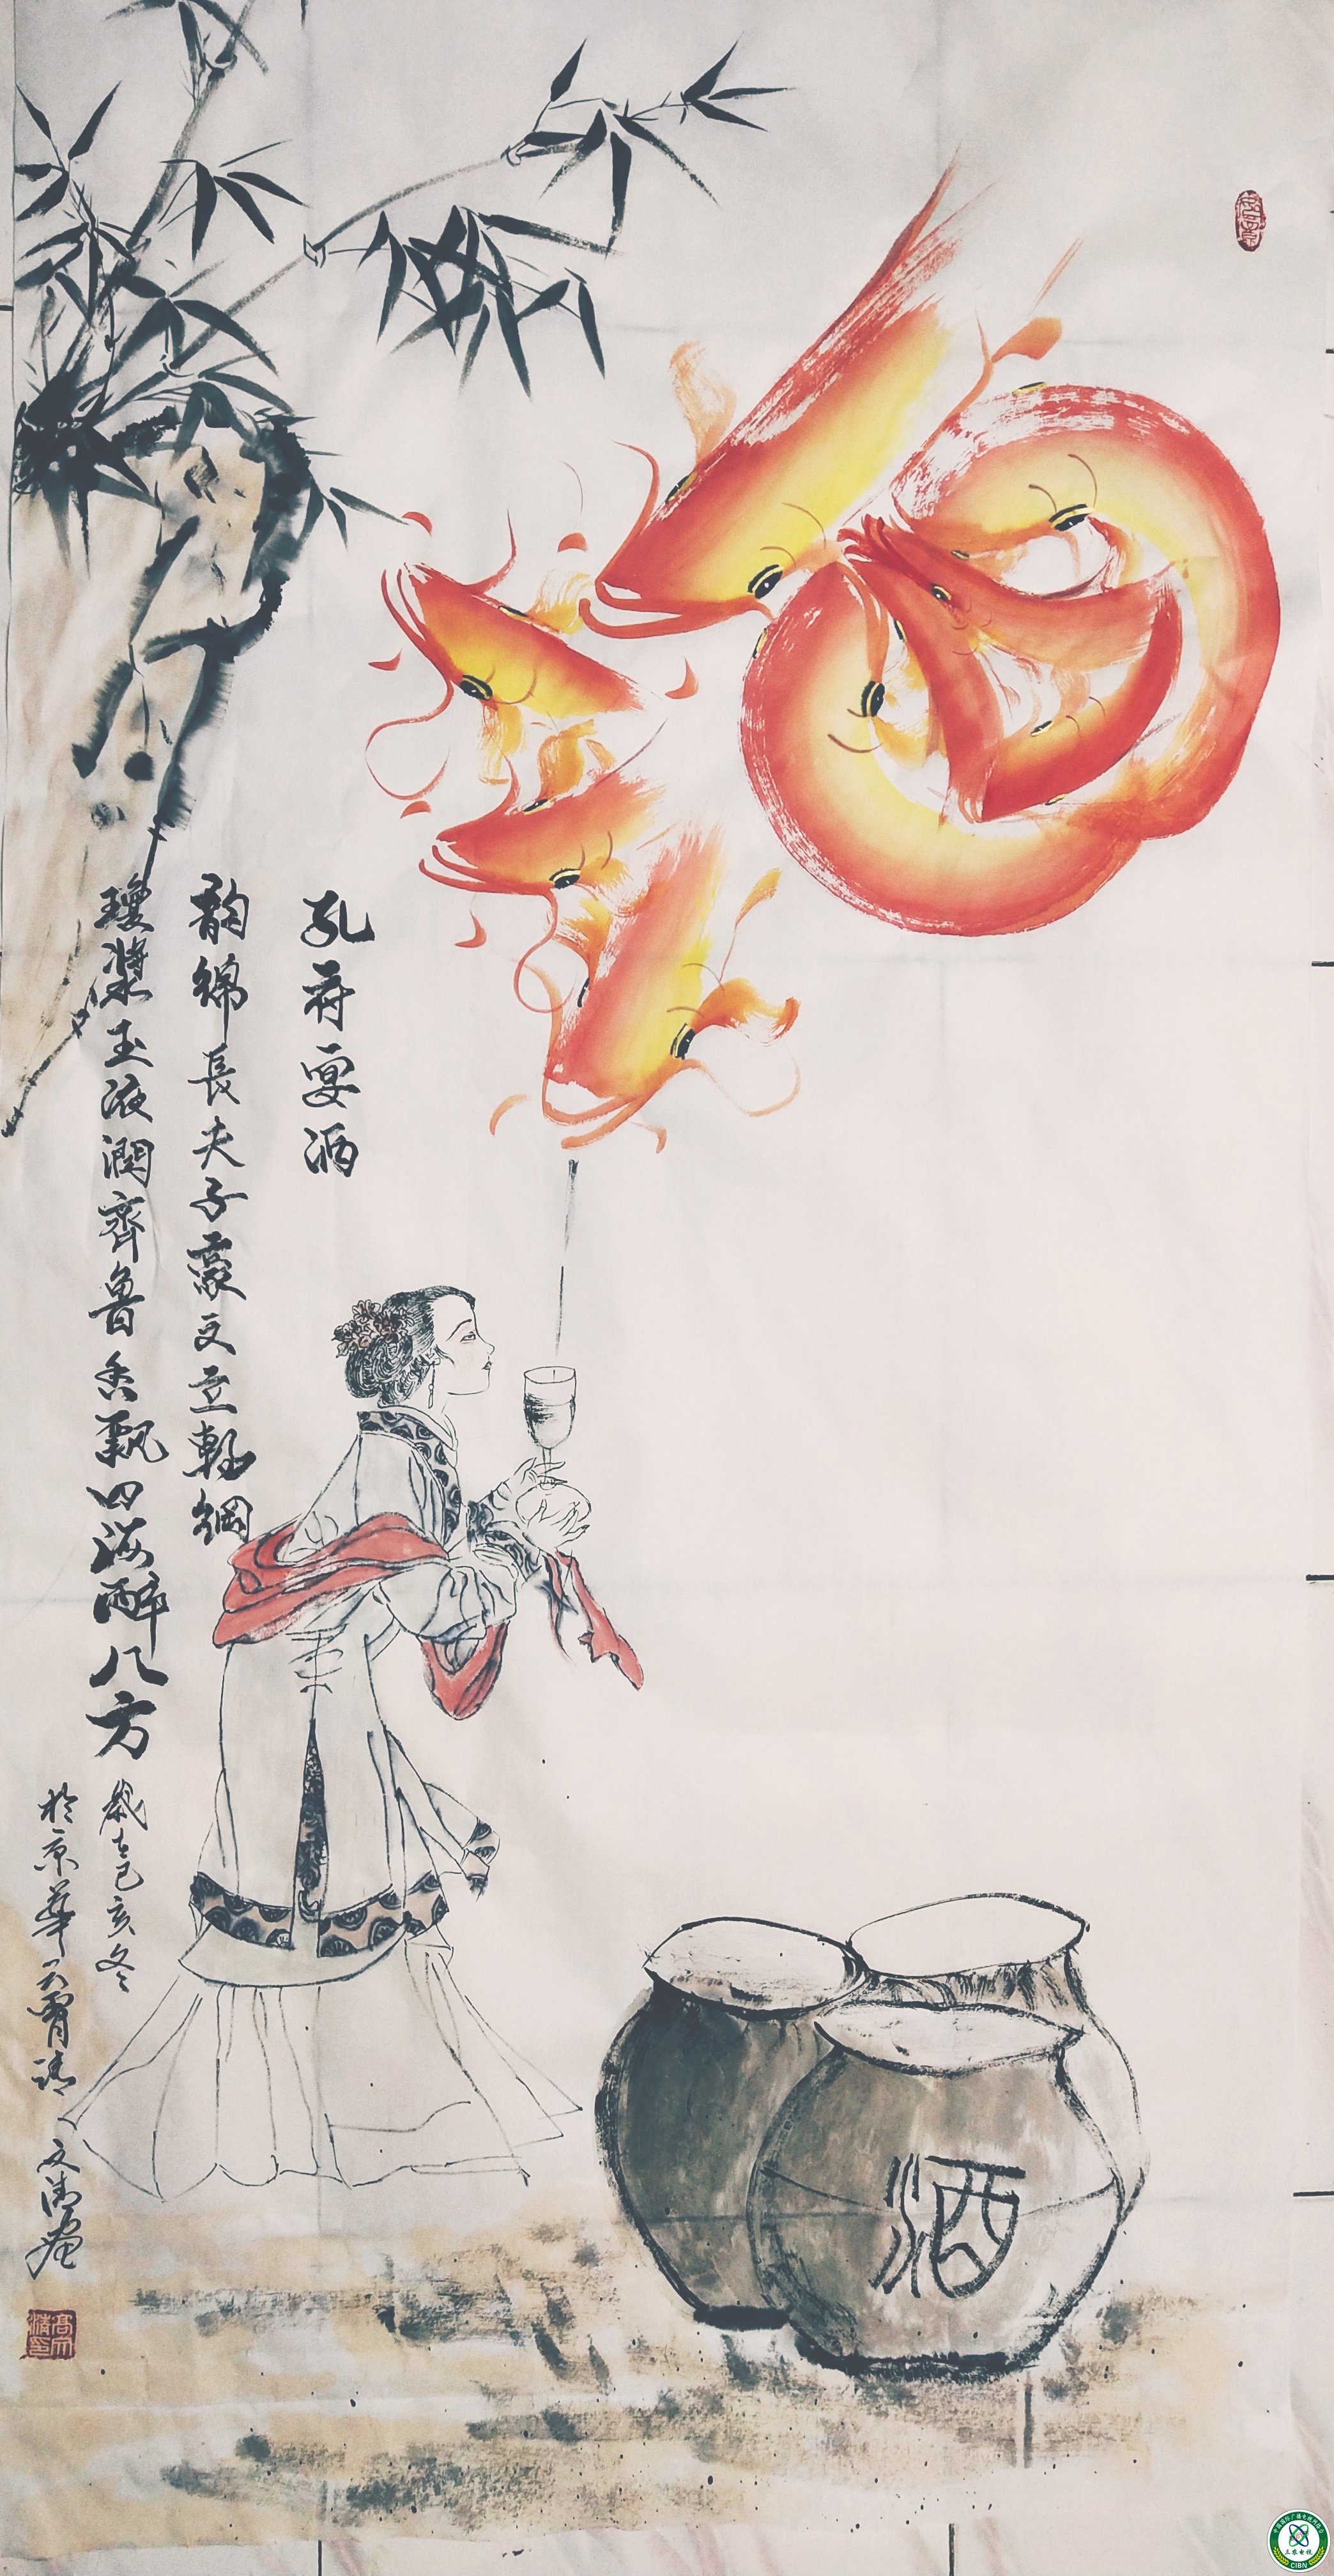 孔府宴酒
韵绵長夫子豪文立乾綱
瓊漿玉液潤齊魯香飄四海醉八方
歲在己亥冬
於京華
文清畫
酒
三农电视
CIBN